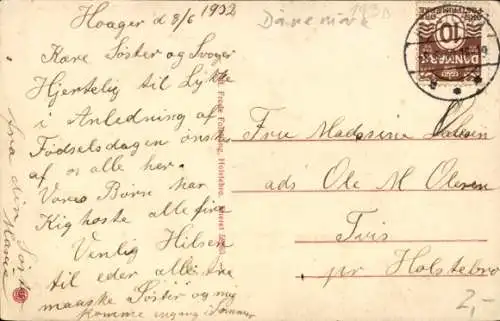 Hoager d 8/6 1932
Kære Søster og Svoger
Hjertelig til Lykke
i Anledning af
Fødselsdagen ønskes
af os alle her.
Vores Børn har
Kighoste alle fire
Venlig Hilsen
til eder alle tre
maaske Søster og mig
komme engang i Sommer
fra din Søster
Marie
Dänemark
10
DANMARK
Fru Madssine Olesen
ads Ole M Olesen
Tvis
pr Holstebro
2,-